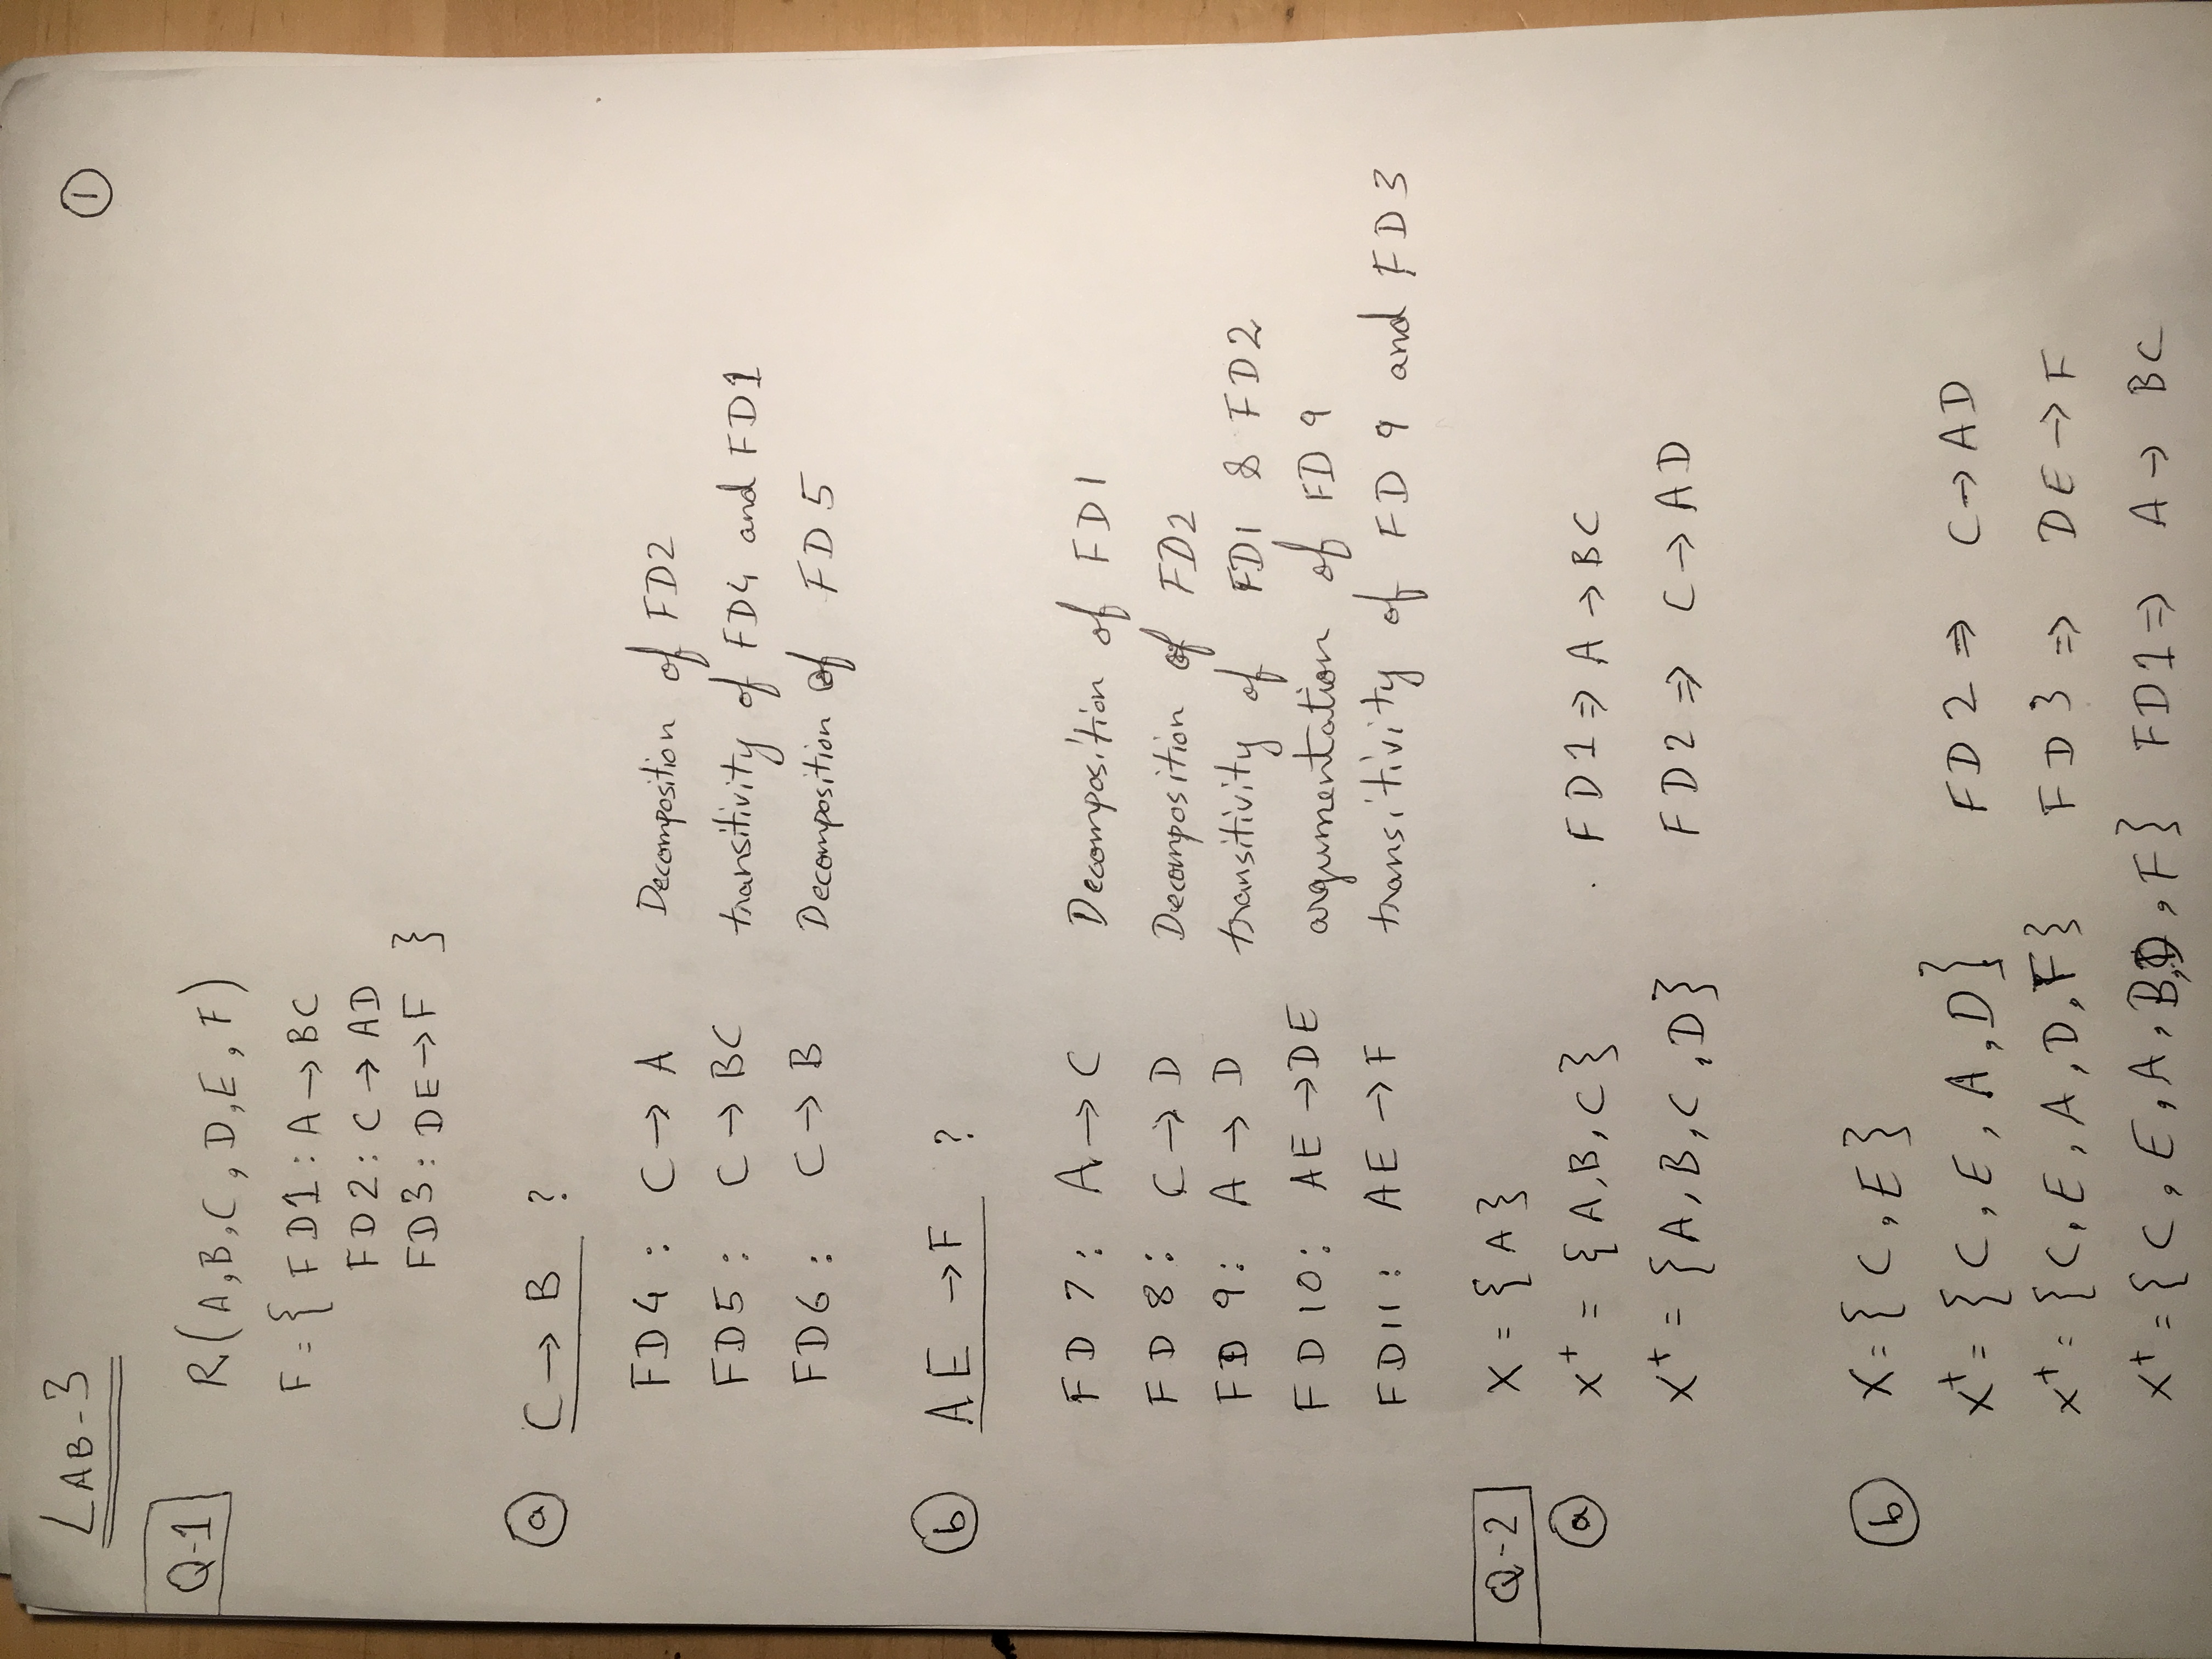 LAB-3
1
Q-1
R(A,B,C,D,E,F)
F={ FD1: A→BC
FD2: C→AD
FD3: DE→F }
a C→B ?
FD4: C→A Decomposition of FD2
FD5: C→BC transitivity of FD4 and FD1
FD6: C→B Decomposition of FD5
b AE→F ?
FD7: A→C Decomposition of FD1
FD8: C→D Decomposition of FD2
FD9: A→D transitivity of FD1 & FD2
FD10: AE→DE argumentation of FD9
FD11: AE→F transitivity of FD9 and FD3
Q-2 X={A}
a X+={A,B,C} FD1⇒A→BC
X+={A,B,C,D} FD2⇒C→AD
b X={C,E}
X+={C,E,A,D} FD2⇒C→AD
X+={C,E,A,D,F} FD3⇒DE→F
X+={C,E,A,B,D,F} FD1⇒A→BC